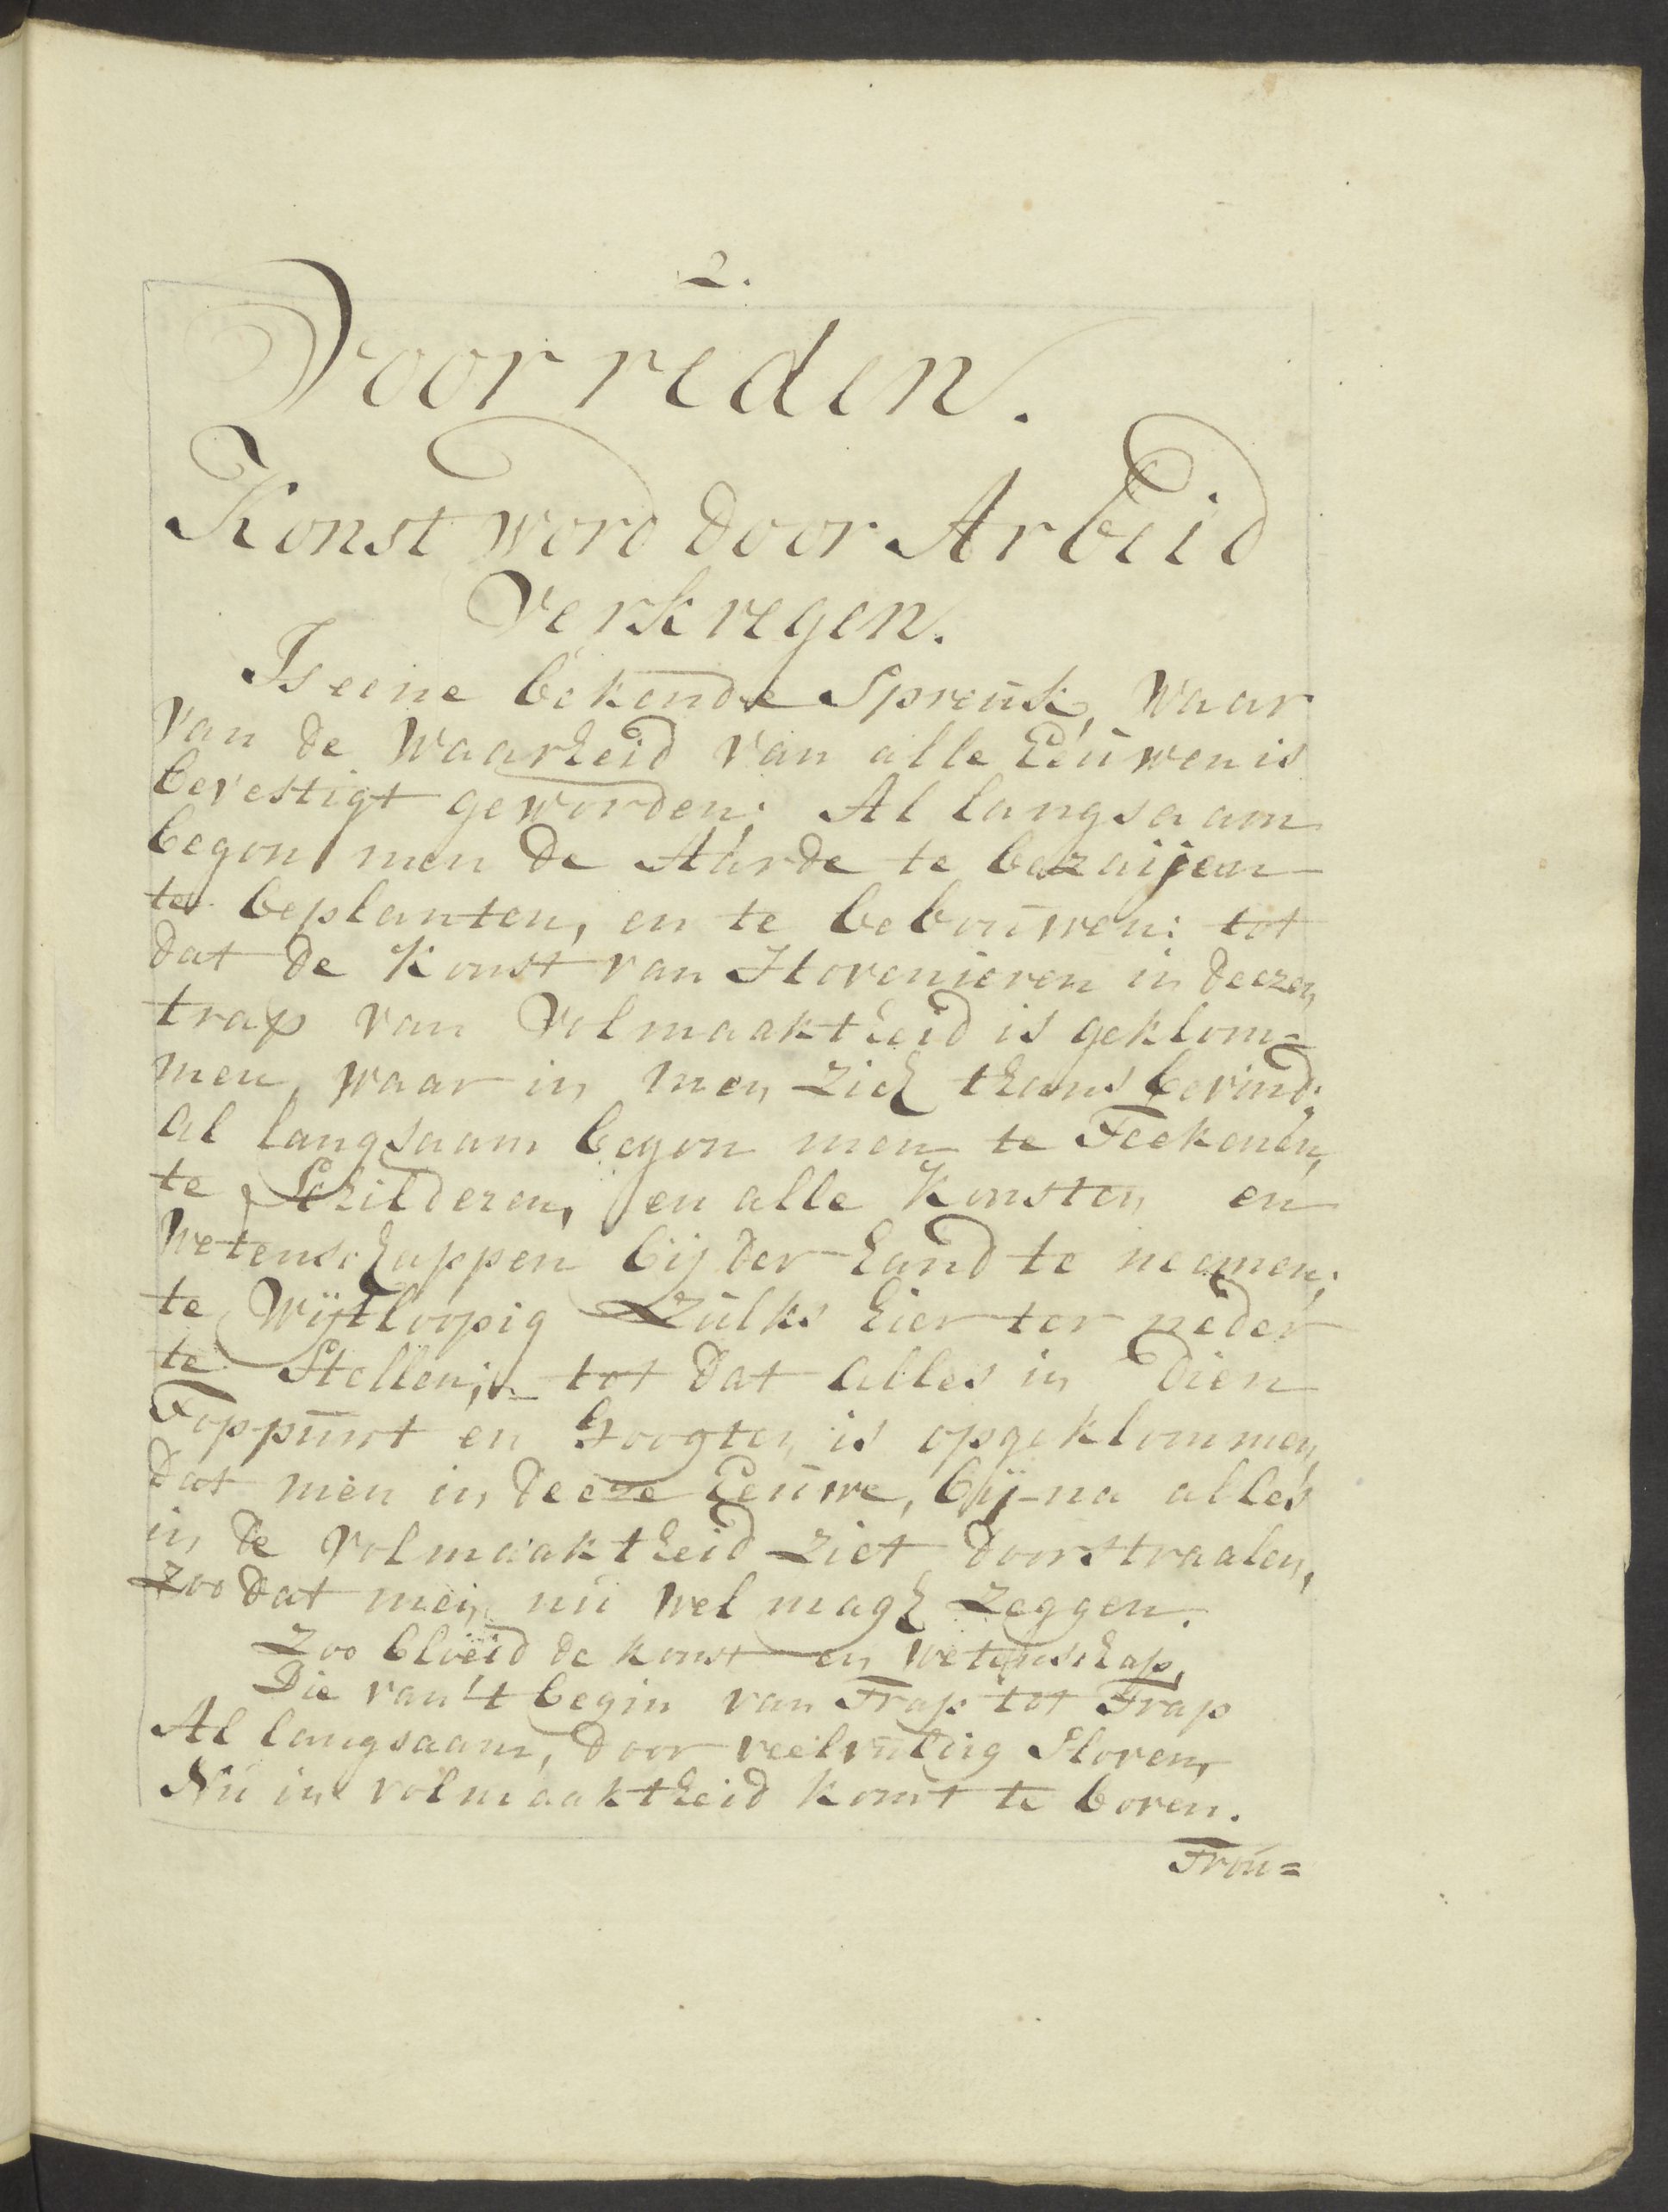 2.
Voorreden.
Konst word door Arbeid
Verkregen.
Is eene bekende Spreuk, waar
van de waarheid van alle Eeuwen is
bevestigt geworden: Al langsaam
begon men de Aarde te bezaijen
te beplanten, en te bebouwen: tot
dat de Konst van Hovenieren in deezen
trap van Volmaaktheid is geklom=
men, waar in men zich thans bevind;
al langsaam begon men te Teekenen,
te Schilderen, en alle Konsten en
Wetenschappen bij der hand te neemen;
te Wijtloopig zulks hier ter neder
te Stellen; tot dat alles in dien
Toppunt en Hoogten is opgeklommen,
dat men in deeze Eeuwe, bij-na alles
in de volmaaktheid ziet doorstraalen,
zoo dat men nu wel magh zeggen.
Zoo bloeid de konst en wetenschap,
Die van 't begin van Trap tot Trap
Al langsaam, door veelvuldig Sloven,
Nu in volmaaktheid komt te boven.
Trou=